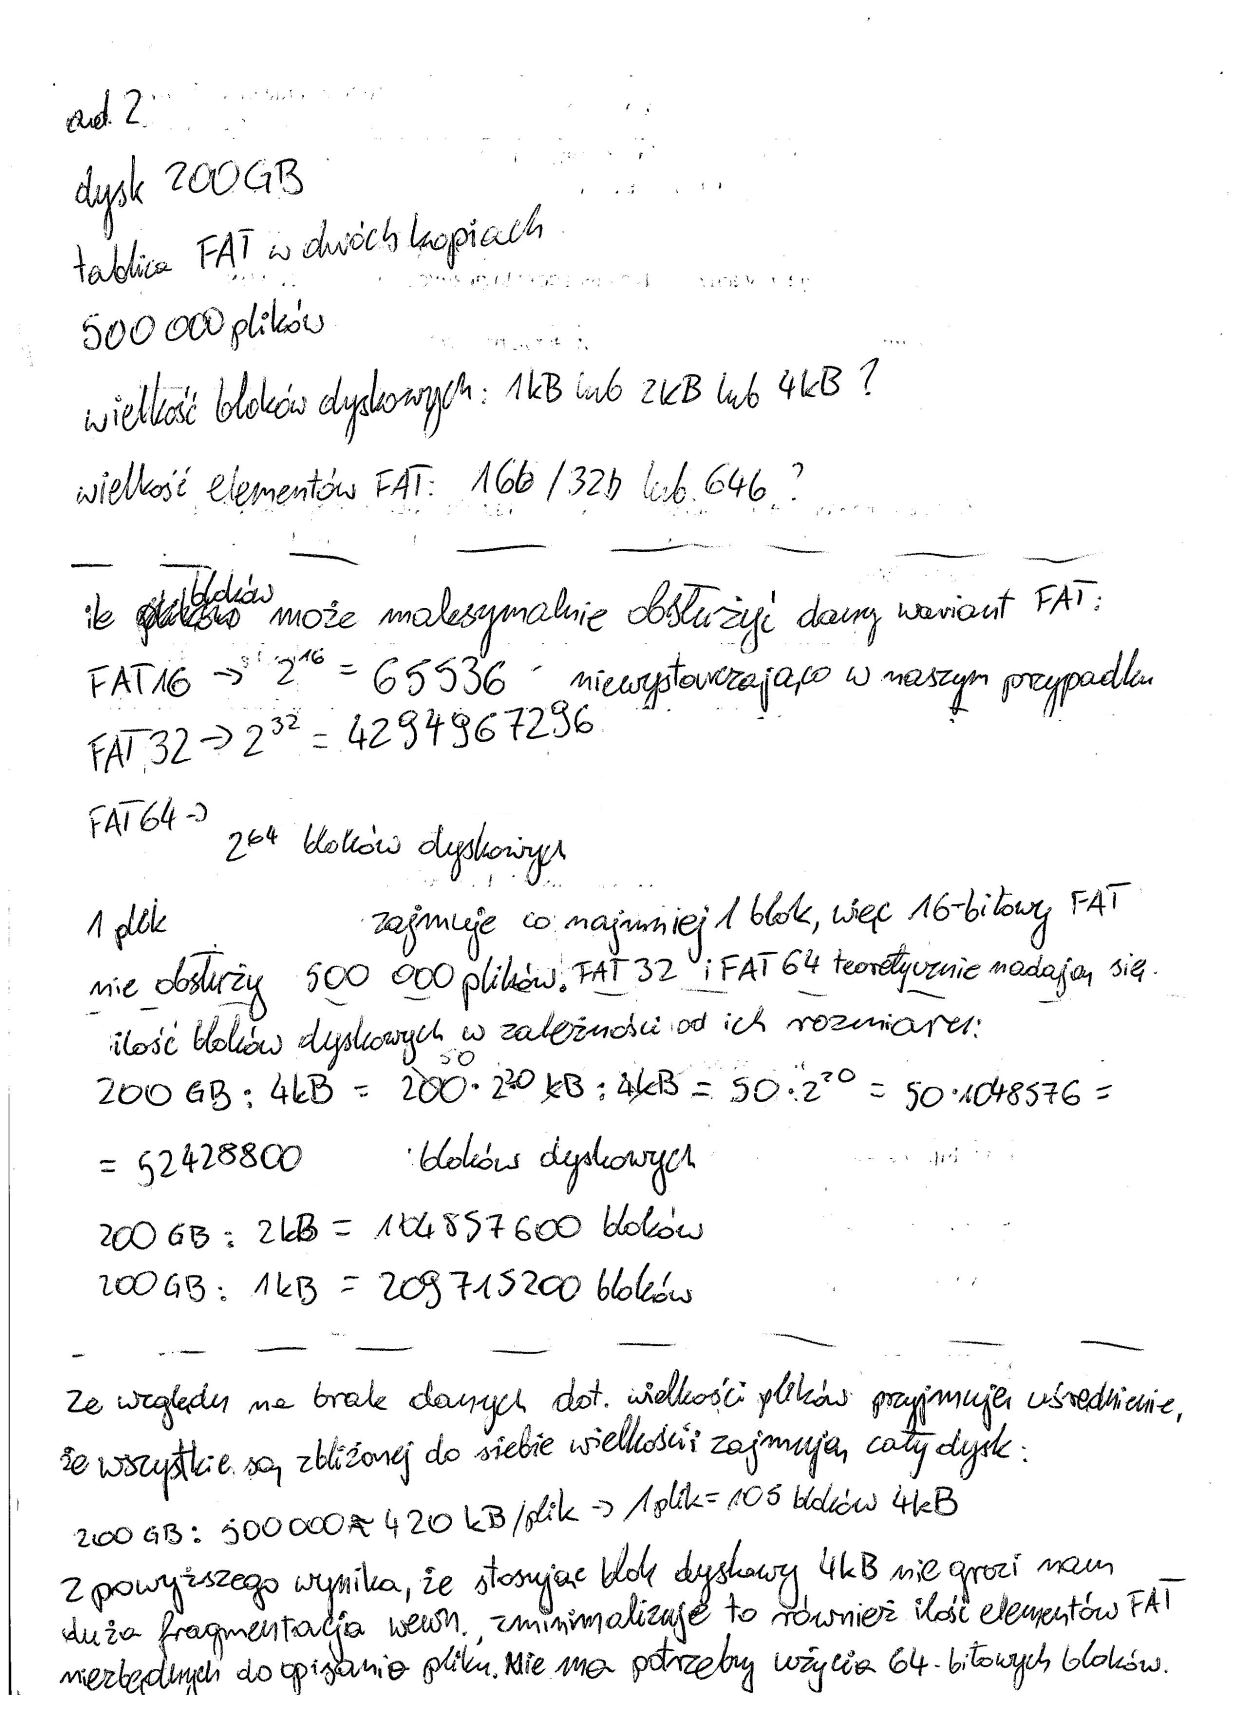 zad. 2
dysk 200GB
tablica FAT w dwóch kopiach
500 000 plików
wielkość bloków dyskowych: 1kB lub 2kB lub 4kB ?
wielkość elementów FAT: 16b /32b lub 64b ?
ile bloków może maksymalnie obsłużyć dany wariant FAT:
FAT16 → 2^16 = 65536 - niewystarczająco w naszym przypadku
FAT32 → 2^32 = 4294967296
FAT64 →
2^64 bloków dyskowych
1 plik zajmuje co najmniej 1 blok, więc 16-bitowy FAT
nie obsłuży 500 000 plików. FAT32 i FAT64 teoretycznie nadają się.
ilość bloków dyskowych w zależności od ich rozmiaru:
50
200 GB : 4kB = 200 · 2^20 kB : 4kB = 50 · 2^20 = 50 · 1048576 =
= 52428800 bloków dyskowych
200 GB : 2kB = 104857600 bloków
200GB : 1kB = 209715200 bloków
Ze względu na brak danych dot. wielkości plików przyjmuję uśrednienie,
że wszystkie są zbliżonej do siebie wielkości i zajmują cały dysk:
200 GB : 500000 ≈ 420 kB/plik → 1 plik = 105 bloków 4kB
Z powyższego wynika, że stosując blok dyskowy 4kB nie grozi nam
duża fragmentacja wewn., zminimalizuje to również ilość elementów FAT
niezbędnych do opisania pliku. Nie ma potrzeby użycia 64-bitowych bloków.